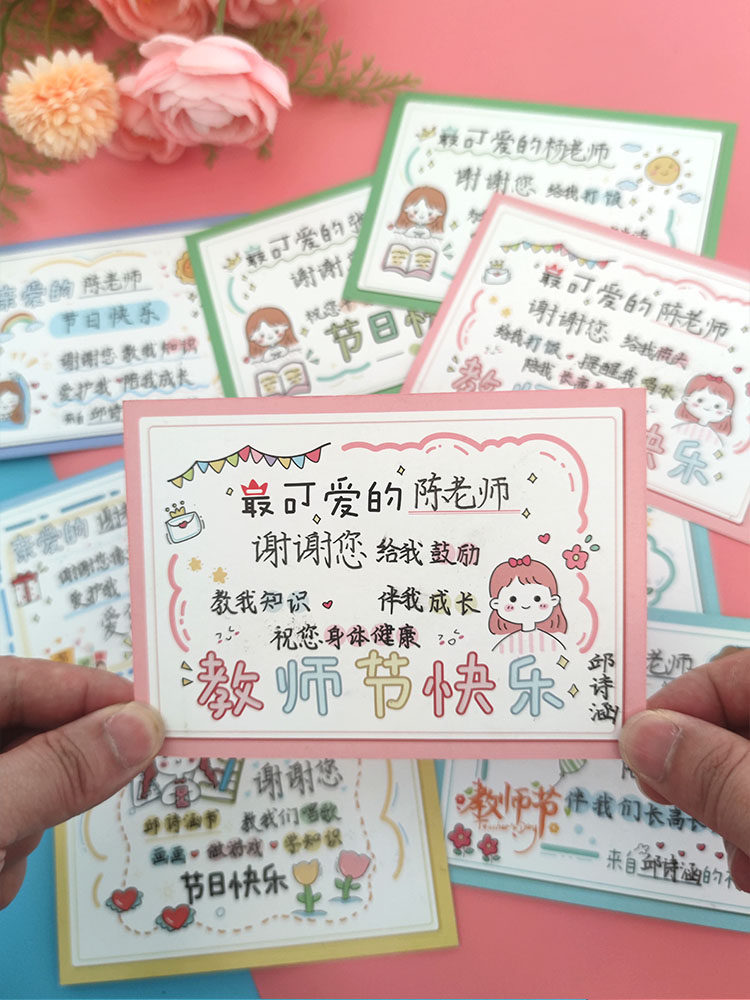 最可爱的杨老师
谢谢您 给我打饭
最可爱的张
谢谢
祝您
节日快乐
亲爱的 陈老师
节日快乐
谢谢您教我知识
爱护我 陪我成长
来自 邱诗
最可爱的陈老师
谢谢您 给我
给我打饭 提醒我喝水
陪我
教
快乐
亲爱的
谢谢您
爱护我
最可爱的 陈老师
谢谢您 给我鼓励
教我知识 伴我成长
祝您身体健康
教师节快乐
邱诗涵
老师
谢谢您
邱诗涵节 教我们唱歌
画画 做游戏 学知识
节日快乐
教师节 伴我们长高长
Teacher's Day
来自邱诗涵的